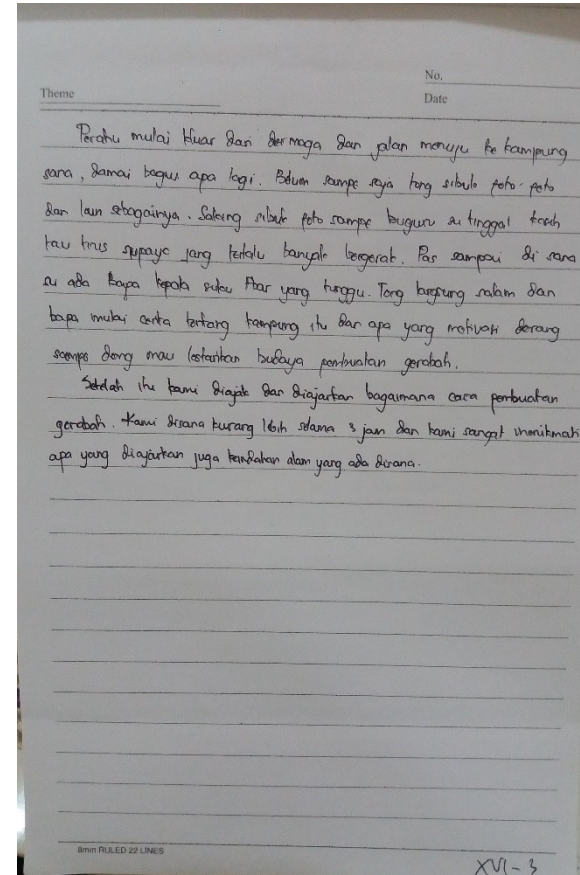 No.
Theme
Date
Perahu mulai kluar dari dermaga dan jalan menuju ke kampung
sana, damai bagus apa lagi. Belum sampe saja tong sibuk foto-foto
dan lain sebagainya. Saking sibuk foto sampe guguru su tinggal
tau trus supaya jang terlalu banyak bergerak. Pas sampai di sana
su ada bapa kepala suku Abar yang tunggu. Tong langsung salam dan
bapa mulai cerita tentang kampung itu dan apa yang motivasi dorang
sampe dong mau lestarikan budaya pembuatan gerabah.
Setelah itu kami diajak dan diajarkan bagaimana cara pembuatan
gerabah. Kami disana kurang lebih selama 3 jam dan kami sangat menikmati
apa yang diajarkan juga keindahan alam yang ada disana.
8mm RULED 22 LINES
XVI - 3